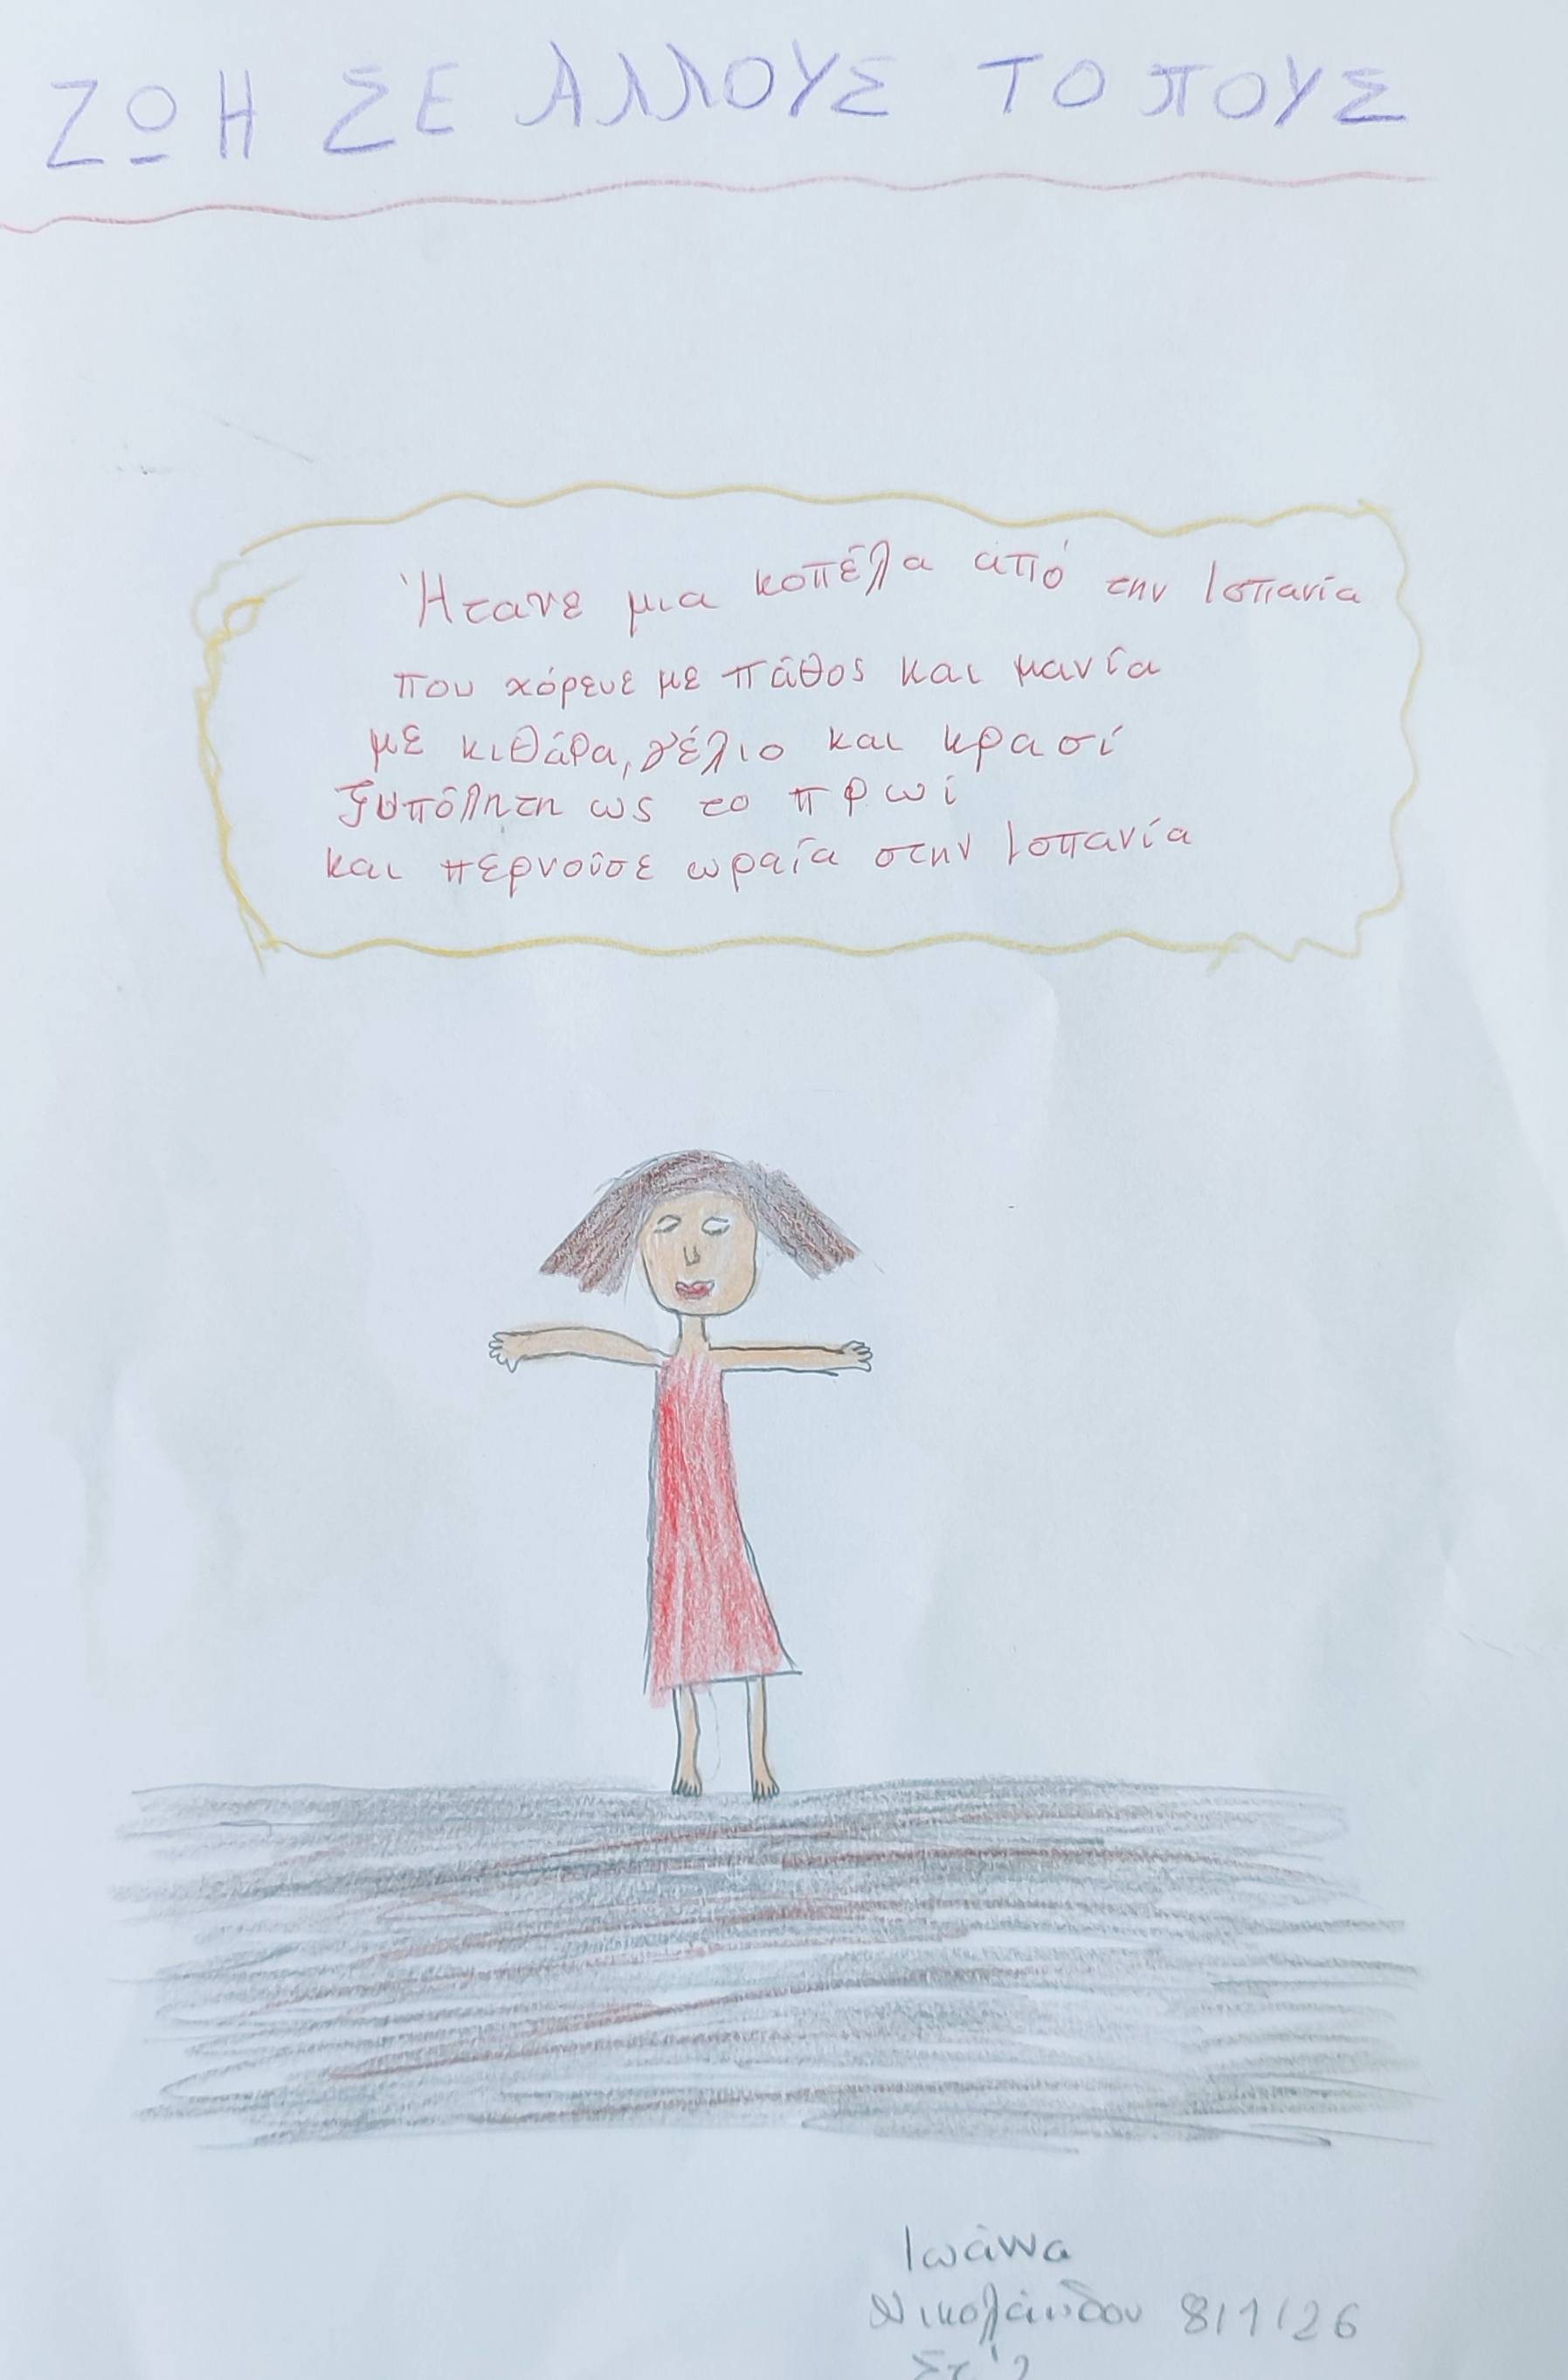 ΖΩΗ ΣΕ ΑΛΛΟΥΣ ΤΟΠΟΥΣ
Ήτανε μια κοπέλα από την Ισπανία
που χόρευε με πάθος και μανία
με κιθάρα, γέλιο και κρασί
ξυπόλητη ως το πρωί
και περνούσε ωραία στην Ισπανία
Ιωάννα
Νικολάιδου 8/1/26
Στ'2